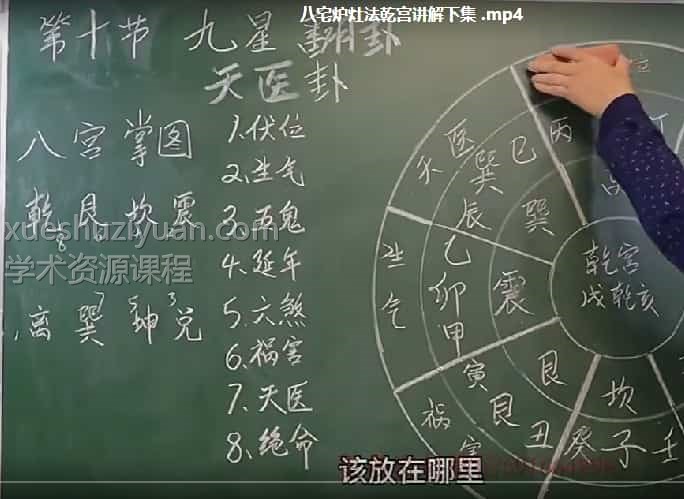 八宅炉灶法乾宫讲解下集 .mp4
第十节 九星 翻卦
天医卦
八宫掌图
乾 艮 坎 震
8
离 巽 坤 兑
7 5 3
1.伏位
2.生气
3.五鬼
4.延年
5.六煞
6.祸害
7.天医
8.绝命
位
丁
天医
丙
巳
巽
辰
巽
生气
乙
卯
甲
震
乾宫
戌乾亥
祸害
寅
艮
丑
艮
坎
癸子壬
xueshuziyuan.com
学术资源课程
该放在哪里